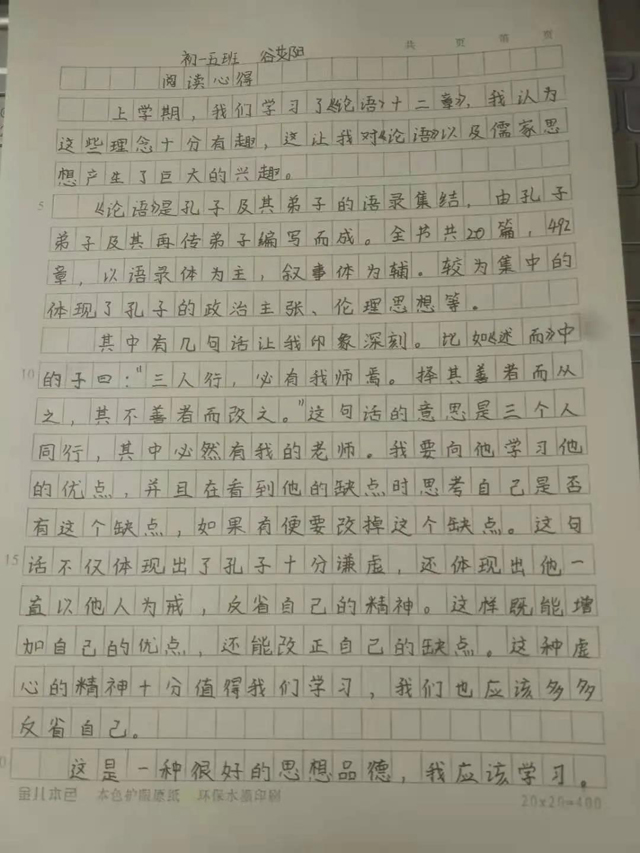 初一五班 谷艾阳
共 页 第 页
阅读心得
上学期，我们学习了《论语》十二章》，我认为
这些理念十分有趣，这让我对《论语》以及儒家思
想产生了巨大的兴趣。
5 《论语》是孔子及其弟子的语录集结，由孔子
弟子及其再传弟子编写而成。全书共20篇，492
章，以语录体为主，叙事体为辅。较为集中的
体现了孔子的政治主张、伦理思想等。
其中有几句话让我印象深刻。比如《述而》中
10 的子曰："三人行，必有我师焉。择其善者而从
之，其不善者而改之。"这句话的意思是三个人
同行，其中必然有我的老师。我要向他学习他
的优点，并且在看到他的缺点时思考自己是否
有这个缺点，如果有便要改掉这个缺点。这句
15 话不仅体现出了孔子十分谦虚，还体现出他一
直以他人为戒，反省自己的精神。这样既能增
加自己的优点，还能改正自己的缺点。这种虚
心的精神十分值得我们学习，我们也应该多多
反省自己。
0 这是一种很好的思想品德，我应该学习。
本色护眼原纸 环保水源印刷
20x20=400